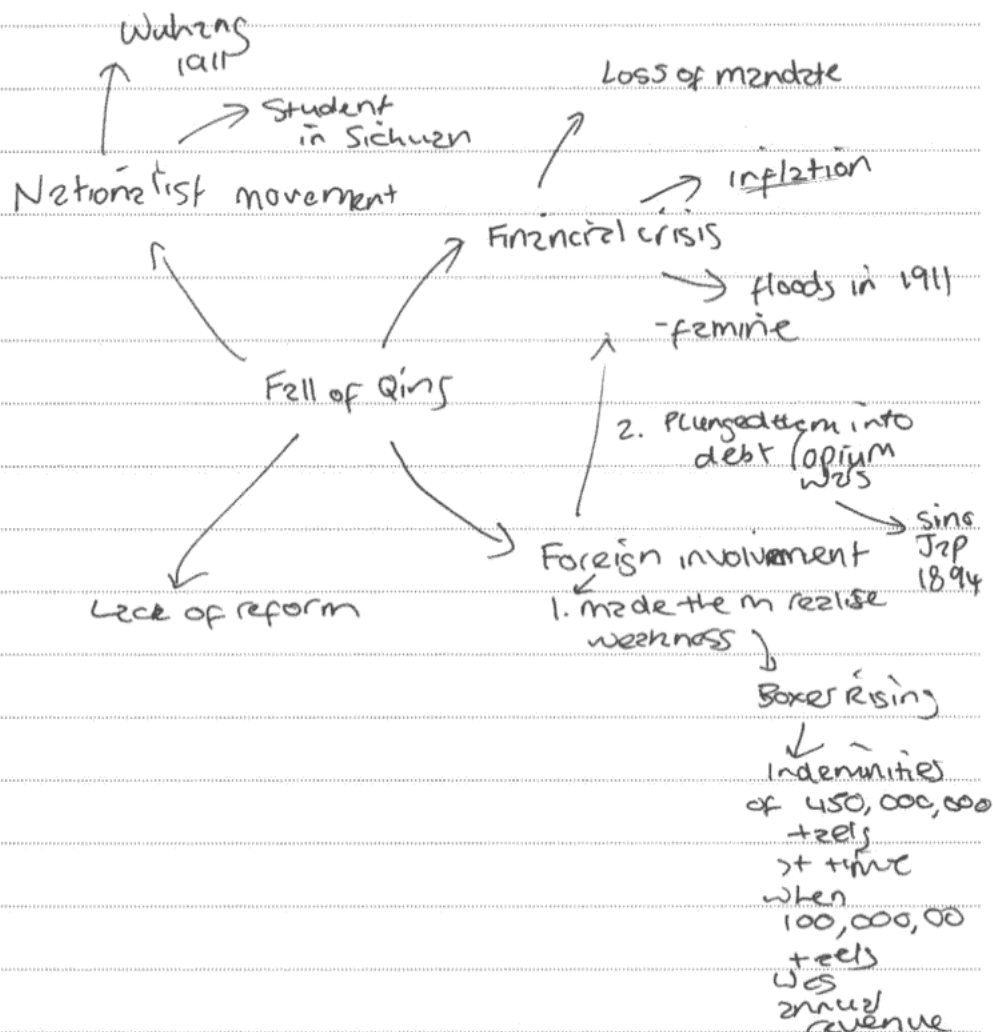 Wuhang
1911
Student
in Sichuan
Nationalist movement
Loss of mandate
inflation
Financial crisis
floods in 1911
-famine
Fall of Qing
2. Plunged them into
debt (opium
wars
sino
Jap
1894
Foreign involvement
1. made them realise
weakness
Lack of reform
Boxer Rising
Indeminities
of 450,000,000
taels
at time
when
100,000,00
taels
was
annual
revenue